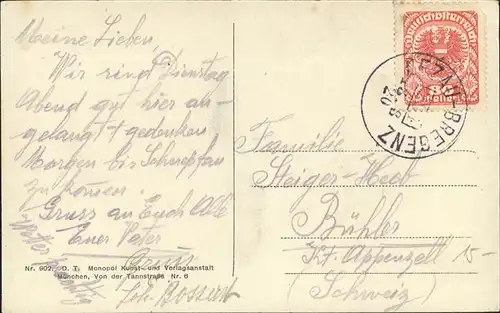 Meine Lieben.
Wir sind Dienstag
Abend gut hier an-
gelangt & gedenken
Morgen bis
zu kommen.
Gruss an Euch Alle
Euer Vater
Gruss
Joh. Bossert
Nr. 902. O. T. Monopol Kunst- und Verlagsanstalt
München, Von der Tannstraße Nr. 6
Deutschösterreich
80
Heller
LINDAU-BREGENZ
20
Familie
Steiger-Heeb
Bühler
Kt. Appenzell
(Schweiz)